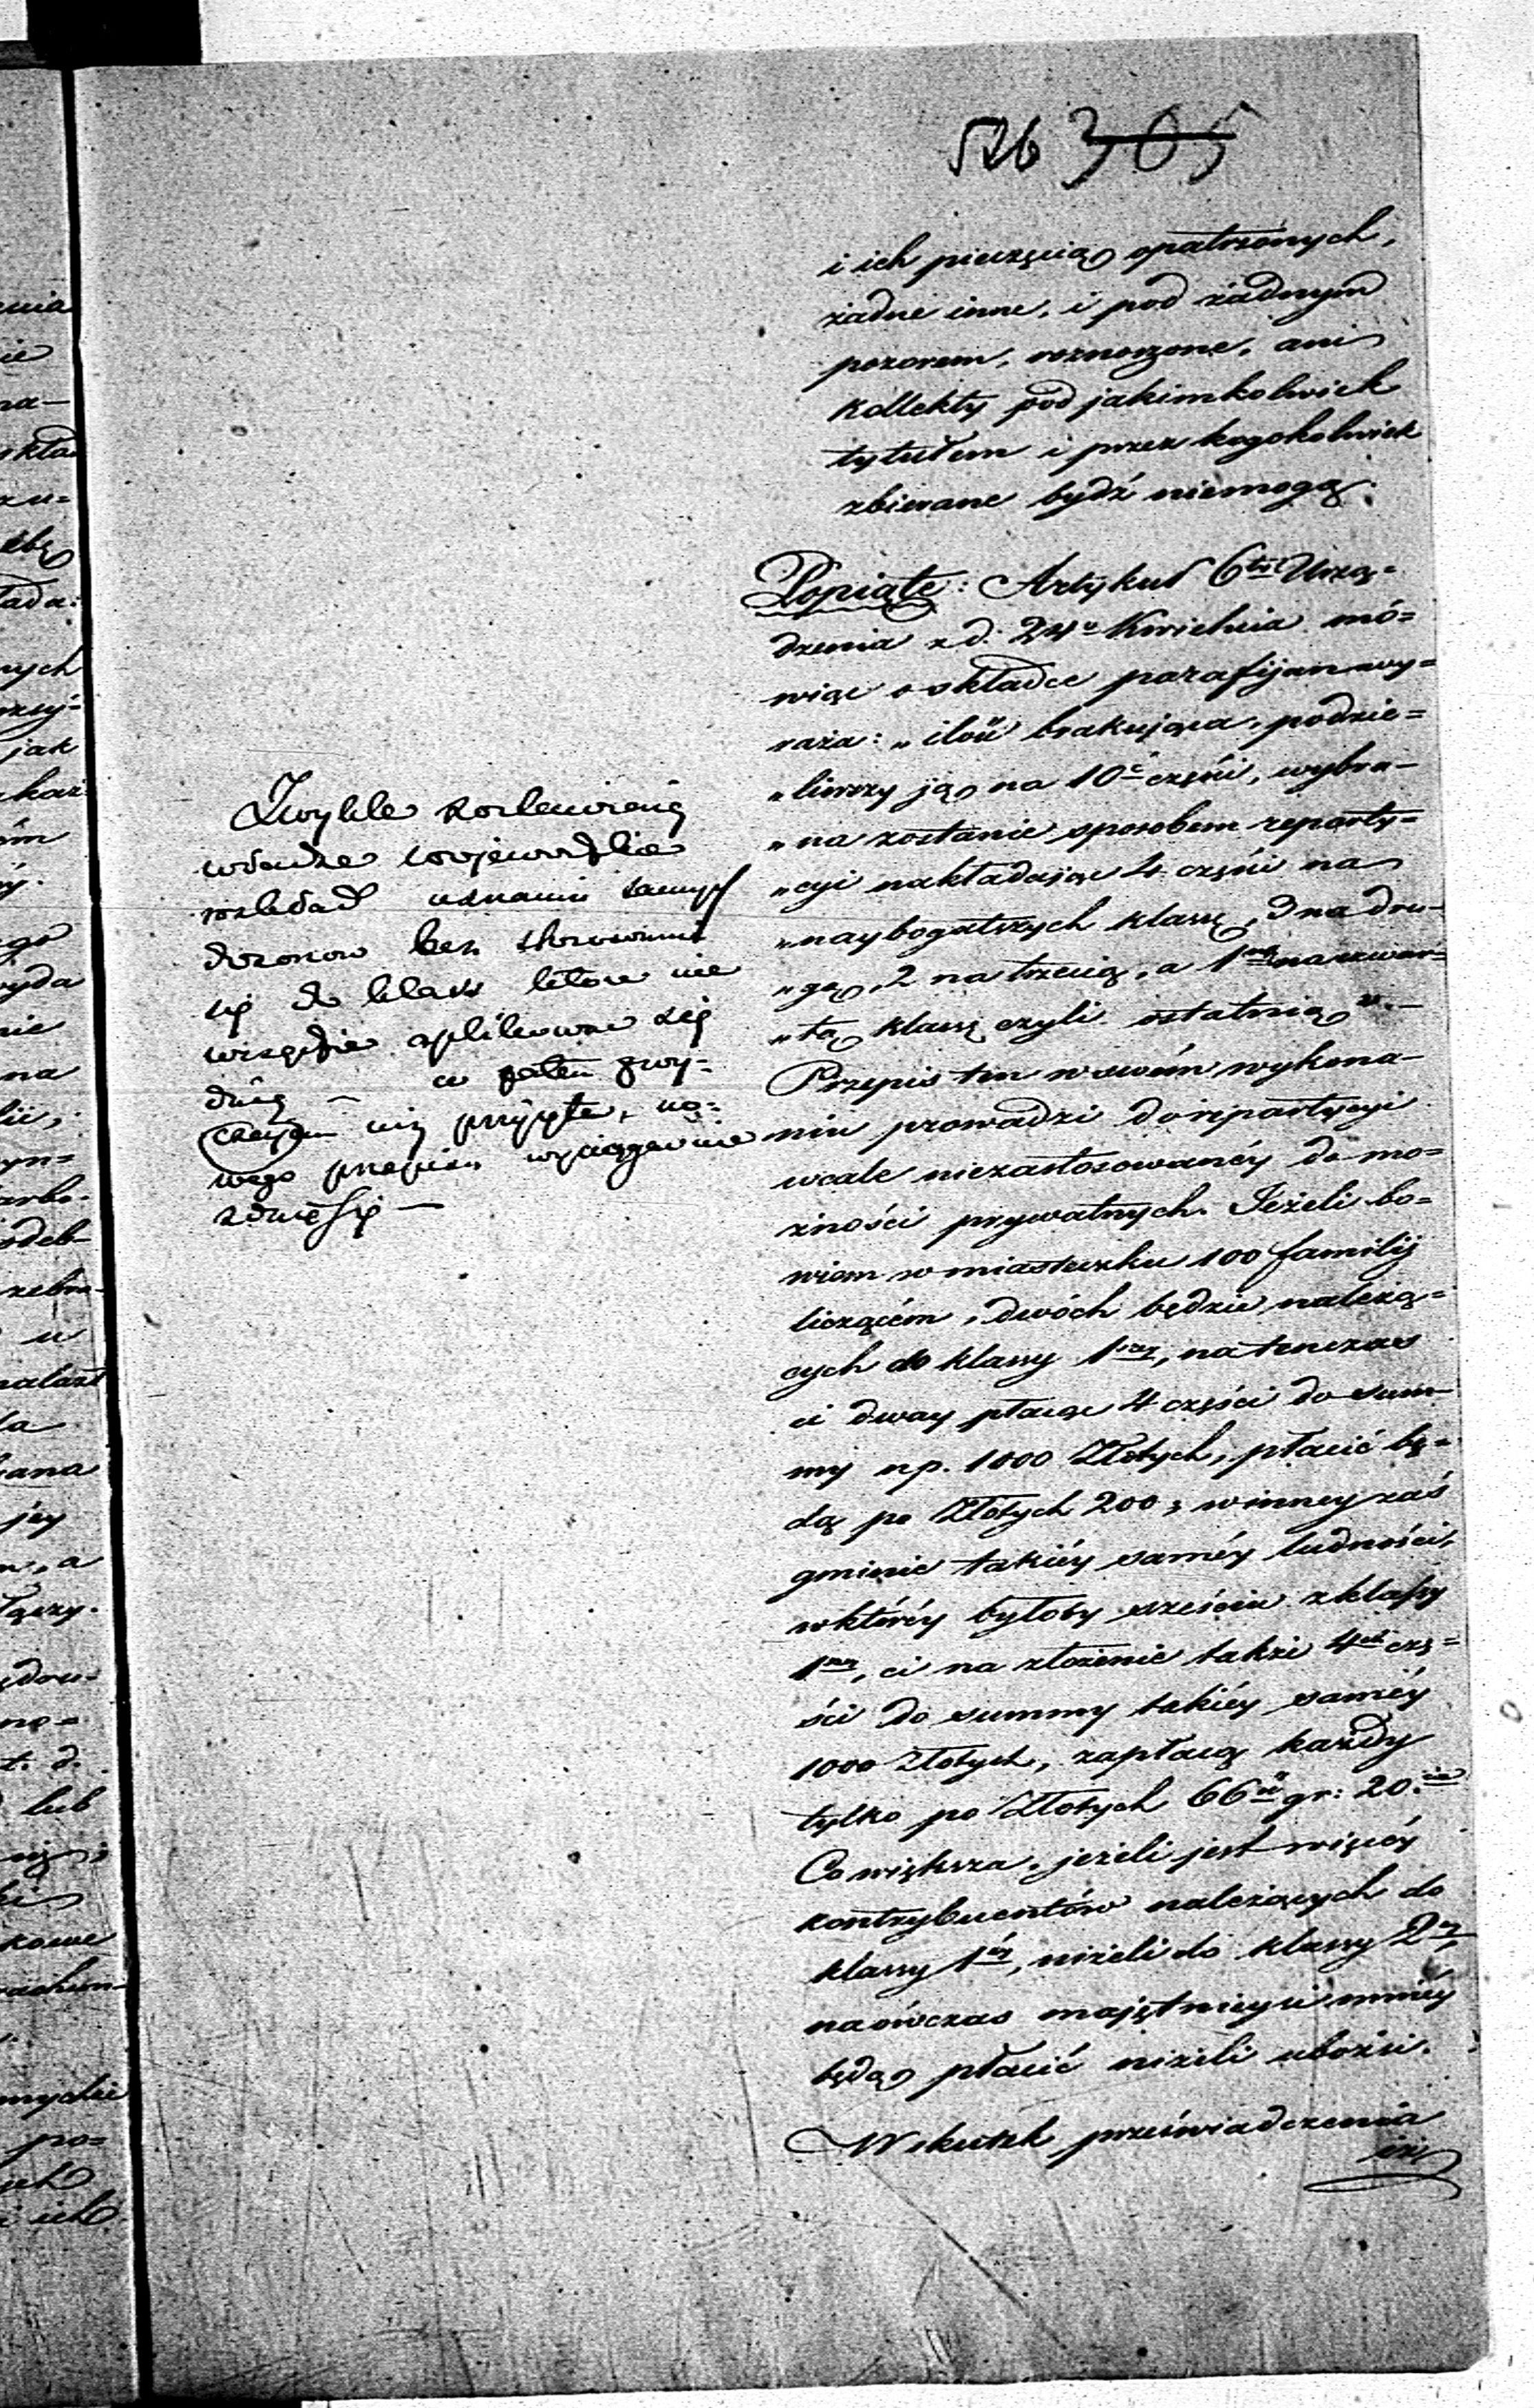 526 305
i ich pieczęcią opatrzonych,
żadne inne, i pod żadnym
pozorem, roznoszone, ani
kollekty pod jakimkolwiek
tytułem i przez kogokolwiek
zbierane bydź niemogą.
Popiąte: Artykuł 6ty Urzą-
dzenia z d. 24o Kwietnia mó-
wiąc o składce parafijan wy-
raża: „ilość brakująca, podzie-
„liwszy ją na 10c części, wybra-
„na zostanie sposobem reparty-
„cyi nakładając 4 części na
„naybogatszych klassę, 3 na dru-
„gą, 2 na trzecią, a 1ną na czwar-
„tą klassę czyli ostatnią”. —
Przepis ten w swém wykona-
niu prowadzi do repartycyi
wcale niezastosowanéy do mo-
żności prywatnych. Jeżeli bo-
wiem w miasteczku 100 familij
liczącém, dwóch będzie należą-
cych do klassy 1szey, natenczas
ci dway płacąc 4 części do sum-
my np. 1000 Złotych, płacić bę-
dą po Złotych 200; w inney zaś
gminie takiéy saméy ludności,
w któréy byłoby sześciu z klassy
1szey, ci na złożenie także 4ch czę-
ści do summy takiéy saméy
1000 Złotych, zapłacą każdy
tylko po Złotych 66 gr: 20.
Co większa, jeżeli jest więcéy
kontrybuentów należących do
klassy 1éy, niżeli do klassy 2éy,
naówczas majętnieysi mniéy
będą płacić niżeli ubożsi.
W skutek przeświadczenia
iż
Zwykle zostawieią
władze wojewodzkie
rozkład uznaniu samych
dozorow bez stosowania
się do klass które nie
wszędzie aplikować się
dają — a zatem zwy-
czajem niż przyięte, no-
wego przepisu wyciągnienie
zdaie się —